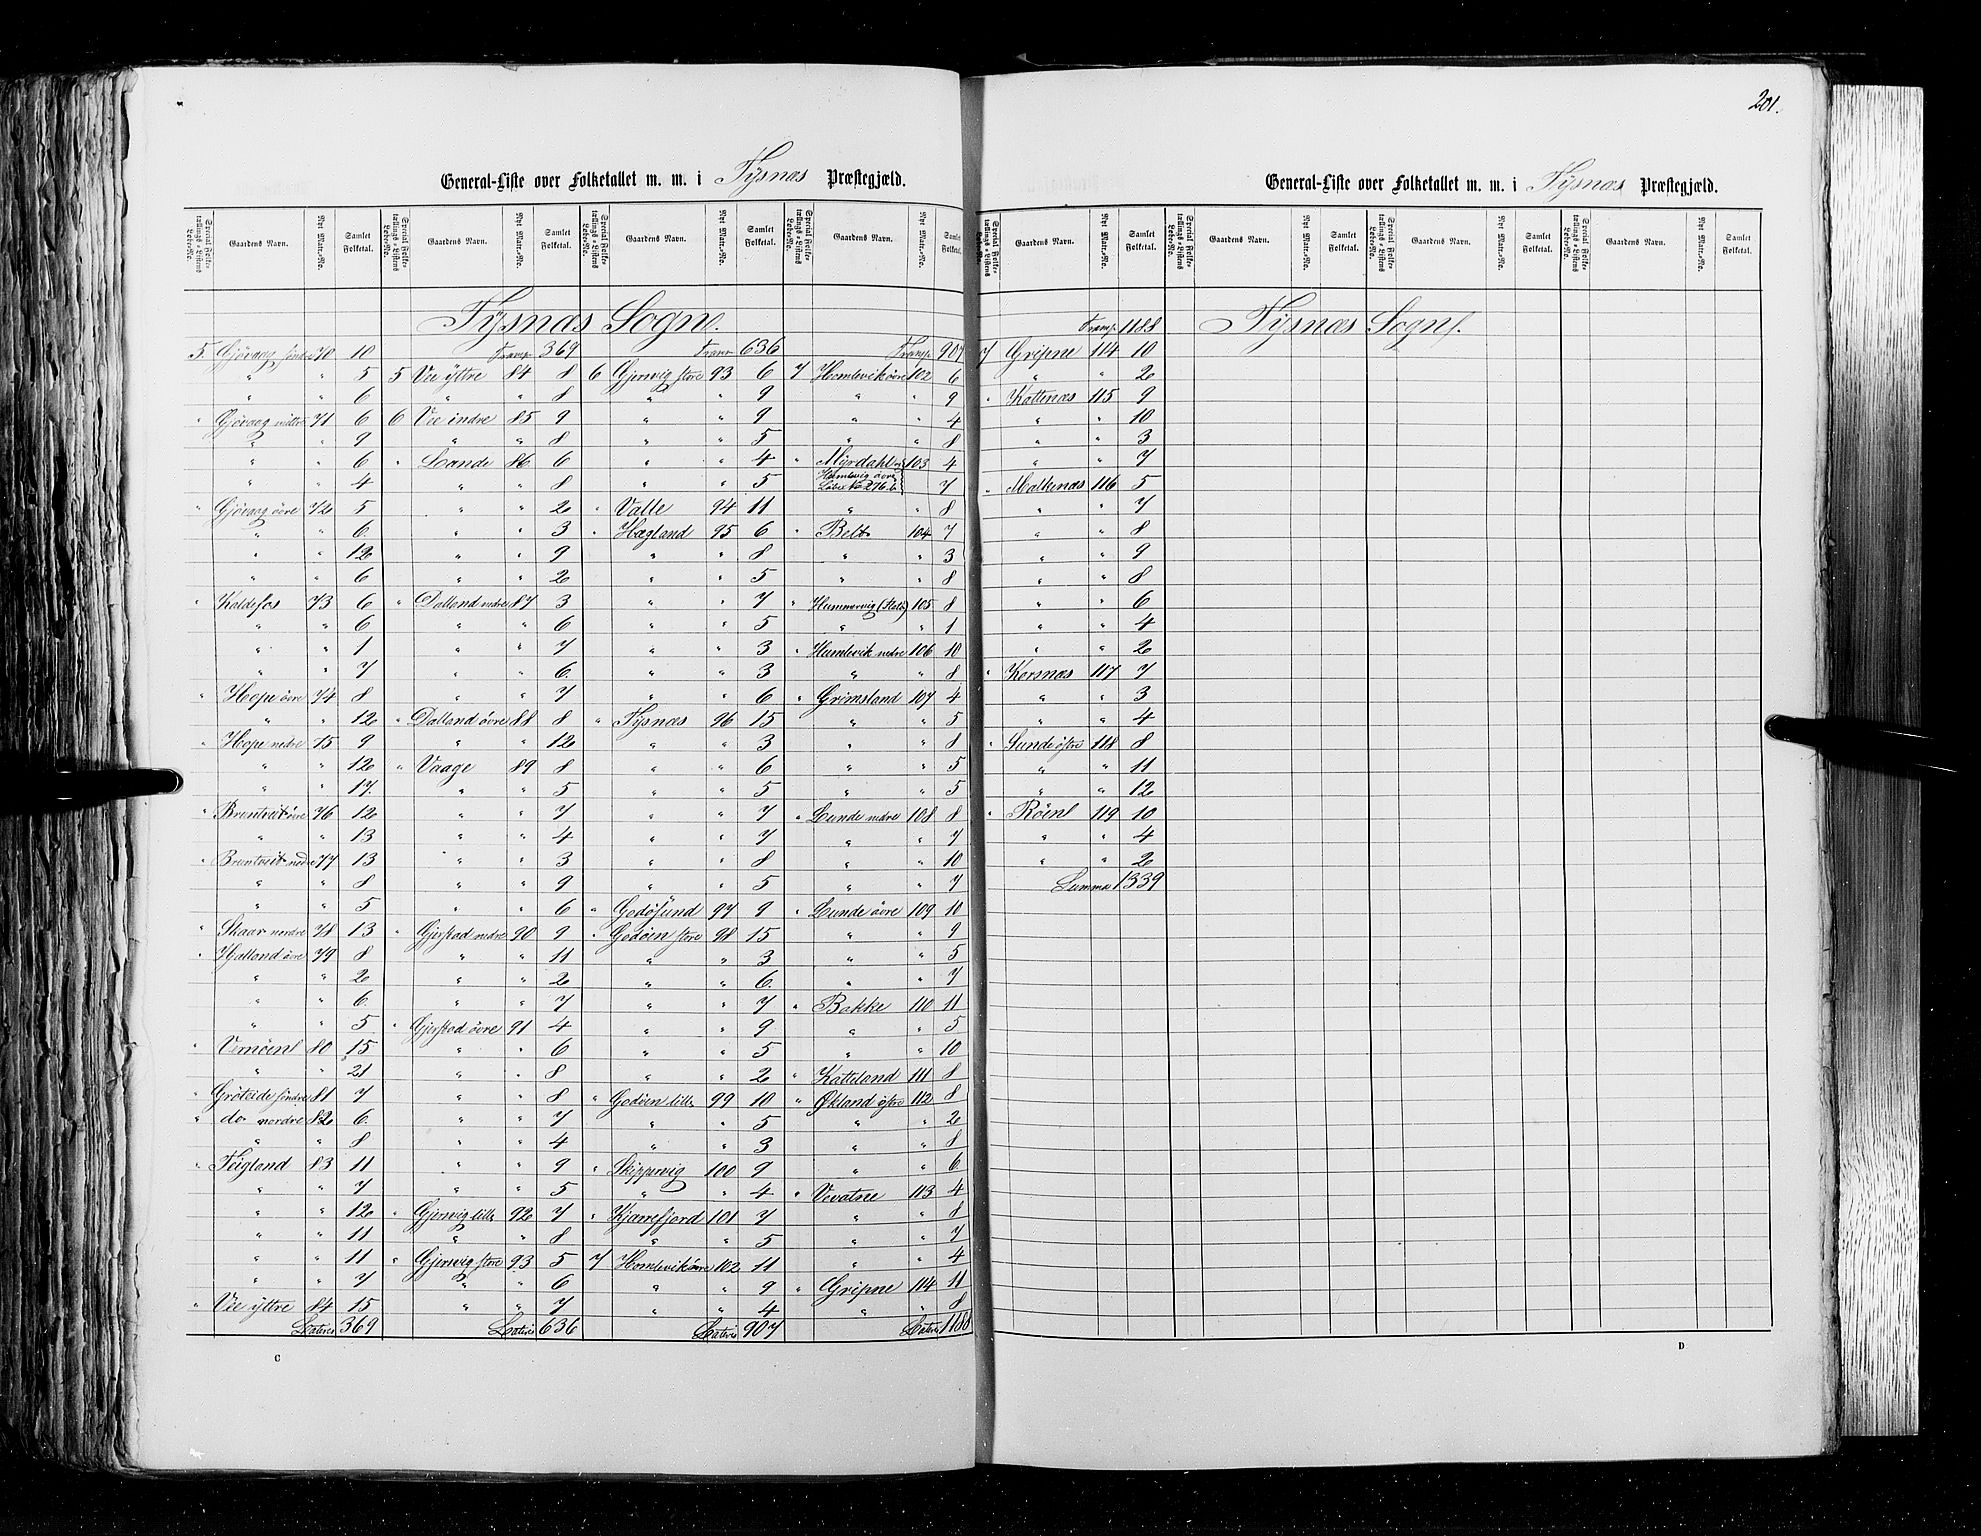 201.
General-Liste over Folketallet m. m. i Tysnæs Præstegjæld.
Special Folketællings-Listens Løbe-No. Gaardens Navn. Nyt Matr.-No. Samlet Folketal. Special Folketællings-Listens Løbe-No. Gaardens Navn. Nyt Matr.-No. Samlet Folketal. Special Folketællings-Listens Løbe-No. Gaardens Navn. Nyt Matr.-No. Samlet Folketal. Special Folketællings-Listens Løbe-No. Gaardens Navn. Nyt Matr.-No. Samlet Folketal.
Tysnæs Sogn.
5. Gjövaag söndre 70 10
" " 5
" " 6
" Gjövaag midtre 71 6
" " 9
" " 6
" " 4
" Gjövaag övre 72 5
" " 6
" " 12
" " 6
" Koldefos 73 6
" " 6
" " 1
" " 7
" Hope övre 74 8
" " 12
" Hope nedre 75 9
" " 12
" " 17
" Bruntveit övre 76 12
" " 13
" Bruntveit nedre 77 13
" " 8
" " 5
" Skaar nordre 78 13
" Halland övre 79 8
" " 2
" " 6
" " 5
" Vernöen 80 15
" " 21
" Gröteide söndre 81 7
" do nordre 82 6
" " 8
" Teigland 83 11
" " 7
" " 12
" " 11
" " 11
" " 7
" Vee yttre 84 15
Lateris 369
Transp. 369
5 Vee yttre 84 8
" " 8
6 Vee indre 85 9
" " 8
" Lande 86 6
" " 8
" " 2
" " 3
" " 9
" " 2
" Dalland nedre 87 3
" " 6
" " 7
" " 6
" " 7
" Dalland övre 88 8
" " 12
" Vaage 89 8
" " 5
" " 7
" " 4
" " 3
" " 9
" " 6
" Gjerstad nedre 90 9
" " 11
" " 2
" " 7
" Gjerstad övre 91 4
" " 6
" " 8
" " 8
" " 7
" " 4
" " 9
" " 5
" Gjersvig lille 92 7
" " 8
" Gjersvig store 93 5
" " 6
" " 7
Lateris 636
Transp. 636
6 Gjersvig store 93 6
" " 9
" " 9
" " 5
" " 4
" " 5
" Valle 94 11
" Hægland 95 6
" " 8
" " 5
" " 7
" " 5
" " 3
" " 3
" " 6
" Tysnæs 96 15
" " 3
" " 6
" " 5
" " 7
" " 7
" " 8
" " 5
" Godösund 97 9
" Godöen store 98 15
" " 3
" " 6
" " 7
" " 9
" " 5
" " 2
" Godöen lille 99 10
" " 5
" " 3
" Skippervig 100 9
" " 4
" Kjærrefjord 101 7
" " 5
7 Humlevik övre 102 11
" " 9
" " 4
Lateris 907
Transp. 907
7 Humlevik övre 102 6
" " 9
" " 4
" " 8
" Myrdahl 103 4
Humlevig övre Löbe No 276.b. 7
" " 8
" Belt 104 7
" " 3
" " 8
" Hummervig 105 8
" " 1
" Humlevik nedre 106 10
" " 8
" Grimsland 107 4
" " 5
" " 8
" " 5
" " 5
" Lunde nedre 108 8
" " 7
" " 10
" " 7
" Lunde övre 109 10
" " 9
" " 5
" " 7
" Bakke 110 11
" " 5
" " 10
" Katteland 111 8
" Økland östre 112 8
" " 2
" " 8
" " 6
" Vevatne 113 4
" " 8
" " 7
" " 4
" Gripne 114 11
" " 8
Lateris 1188
C
General-Liste over Folketallet m. m. i Tysnæs Præstegjæld.
Special Folketællings-Listens Løbe-No. Gaardens Navn. Nyt Matr.-No. Samlet Folketal. Special Folketællings-Listens Løbe-No. Gaardens Navn. Nyt Matr.-No. Samlet Folketal. Special Folketællings-Listens Løbe-No. Gaardens Navn. Nyt Matr.-No. Samlet Folketal. Special Folketællings-Listens Løbe-No. Gaardens Navn. Nyt Matr.-No. Samlet Folketal.
Tysnæs Sogn.
Transp. 1188
7 Gripne 114 10
" " 2
" Kattenæs 115 9
" " 10
" " 3
" " 7
" Malkenæs 116 5
" " 7
" " 8
" " 9
" " 8
" " 6
" " 4
" " 2
" Korsnæs 117 7
" " 3
" " 4
" Sunde östre 118 8
" " 11
" " 12
" Röen 119 10
" " 4
" " 2
Summa 1339
D